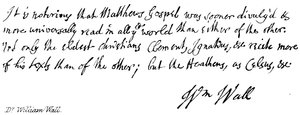 It is notorious that Matthews Gospel was sooner divulg'd &
more universally read in all yͤ world than either of the other.
not only the eldest Christians Clement, Ignatius, &c recite more
of his texts than of the other; but the Heathens, as Celsus, &c:
Wm Wall
Dr William Wall.